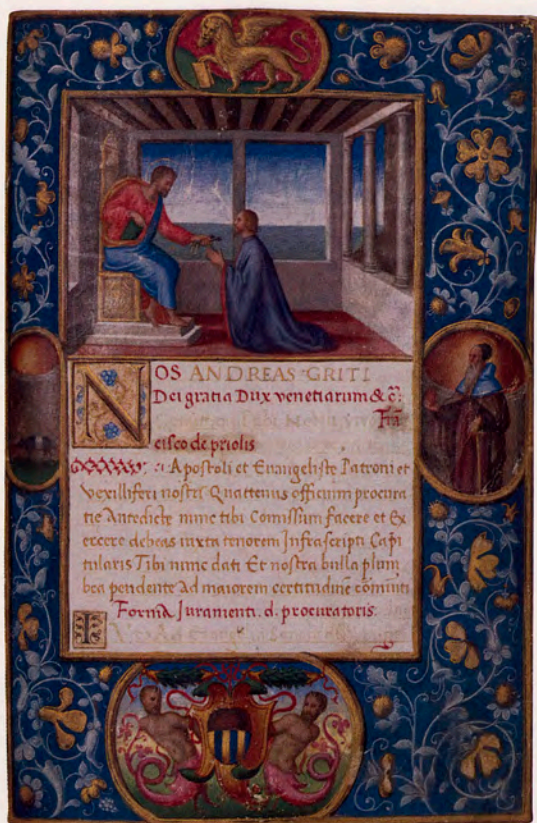 NOS ANDREAS GRITI
Dei gratia Dux venetiarum & c̄:
Frā
cisco de priolis
Apostoli et Evangeliste Patroni et
vexilliferi nostri Quattenus officium procura
tie Antedicte nunc tibi Comissum facere et Ex
ercere debeas iuxta tenorem Infrascripti Capi
tularis Tibi nunc dati Et nostra bulla plum
bea pendente Ad maiorem certitudinē cōmuniti
Forma Juramenti. d. procuratoris.